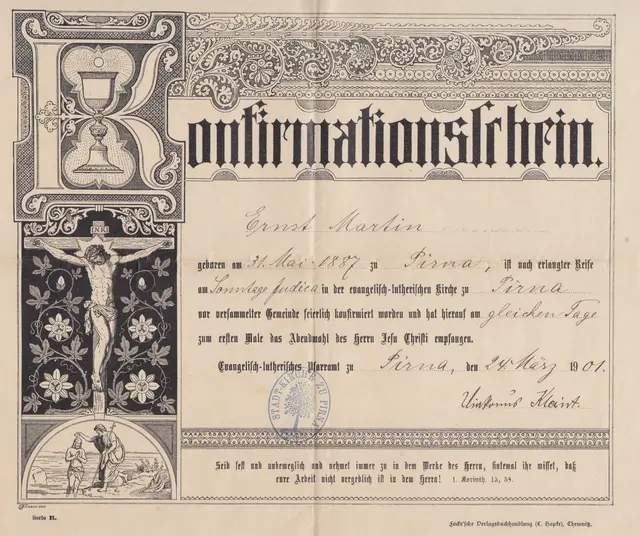 Konfirmationsschein.
INRI
Ernst Martin
geboren am 31. Mai 1887 zu Pirna, ist nach erlangter Reife
am Sonntage Judica in der evangelisch-lutherischen Kirche zu Pirna
vor versammelter Gemeinde feierlich konfirmiert worden und hat hierauf am gleichen Tage
zum ersten Male das Abendmahl des Herrn Jesu Christi empfangen.
Evangelisch-lutherisches Pfarramt zu Pirna, den 24. März 1901.
STADT-KIRCHE ZU PIRNA
Seid fest und unbeweglich und nehmet immer zu in dem Werke des Herrn, sintemal ihr wisset, daß
eure Arbeit nicht vergeblich ist in dem Herrn! 1. Korinth. 15, 58.
Serie H.
Focke'sche Verlagsbuchhandlung (C. Hapke), Chemnitz.